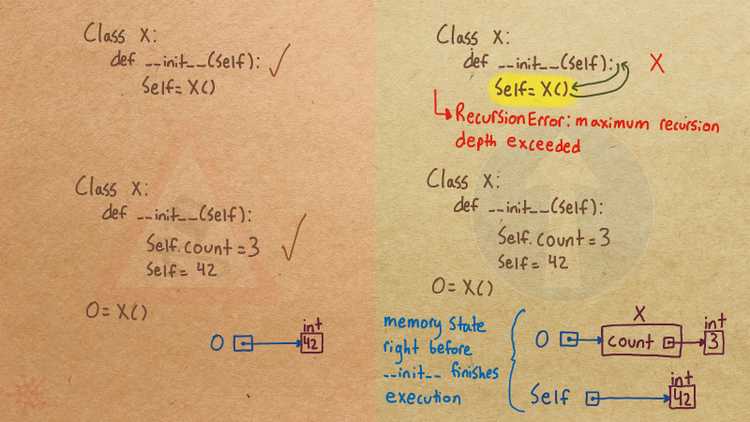 Class X:
def __init__(Self):
Self = X()
Class X:
def __init__(Self):
Self.count = 3
Self = 42
O = X()
O
int
42
Class X:
def __init__(Self):
X
Self = X()
RecursionError: maximum recursion
depth exceeded
Class X:
def __init__(Self):
Self.count = 3
Self = 42
O = X()
memory state
right before
__init__ finishes
execution
X
int
O
count
3
int
Self
42